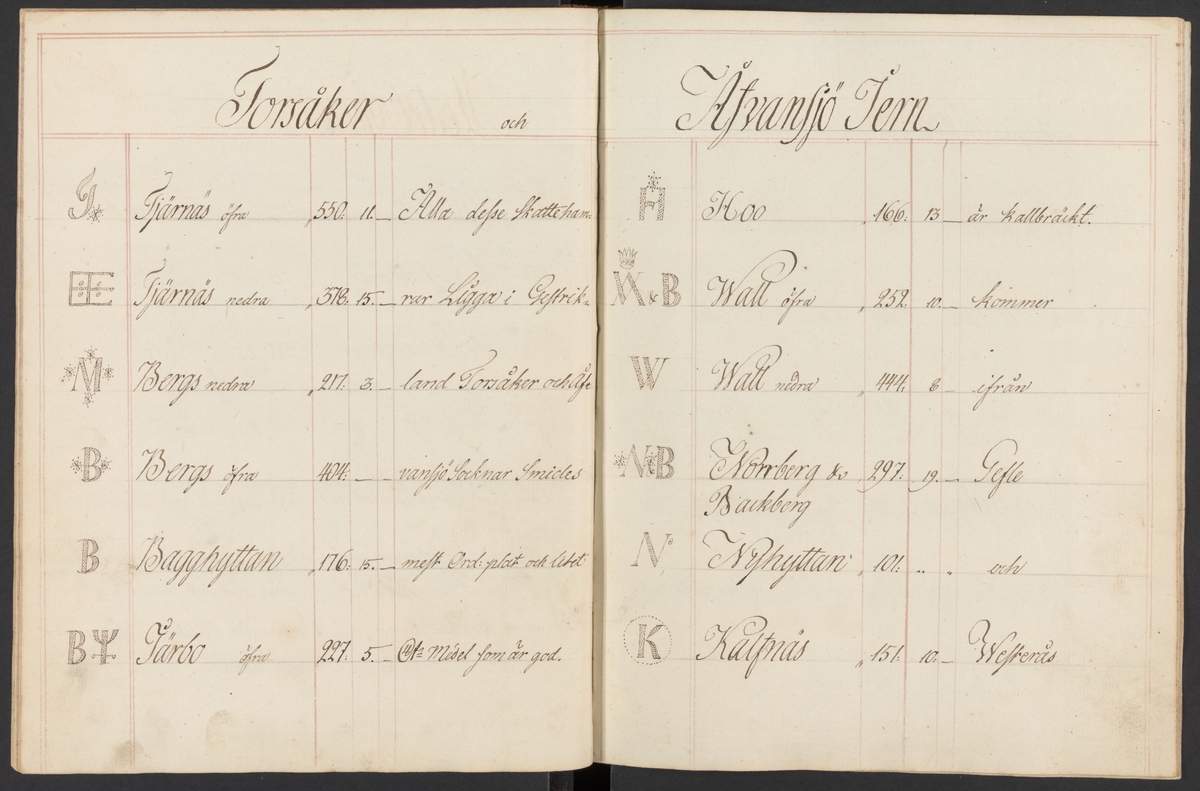 Torsåker och
Tjärnäs öfra „550: 11.— Alla desse skatteham-
Tjärnäs nedra „378: 15.— rar Ligga i Gestrik-
M Bergs nedra „217: 3.— land Torsåker och Åfv
B Bergs öfra 404: — — vansjö Socknar Smides
B Bagghyttan „176: 15.— mest Ord: plåt och litet
B Järbo öfra 227: 5.— Mäsel som är god.
Åfvansjö Jern
H Hoo „166: 13 — är kallbräckt.
W & B Wall öfra „252. 10.— kommer
W Wall nedra „444: 8 — ifrån
NB Norrberg & 297. 19.— Gefle
Backberg
N Nyhyttan „101: „ „ och
K Kalfnäs „151: 10.— Westerås